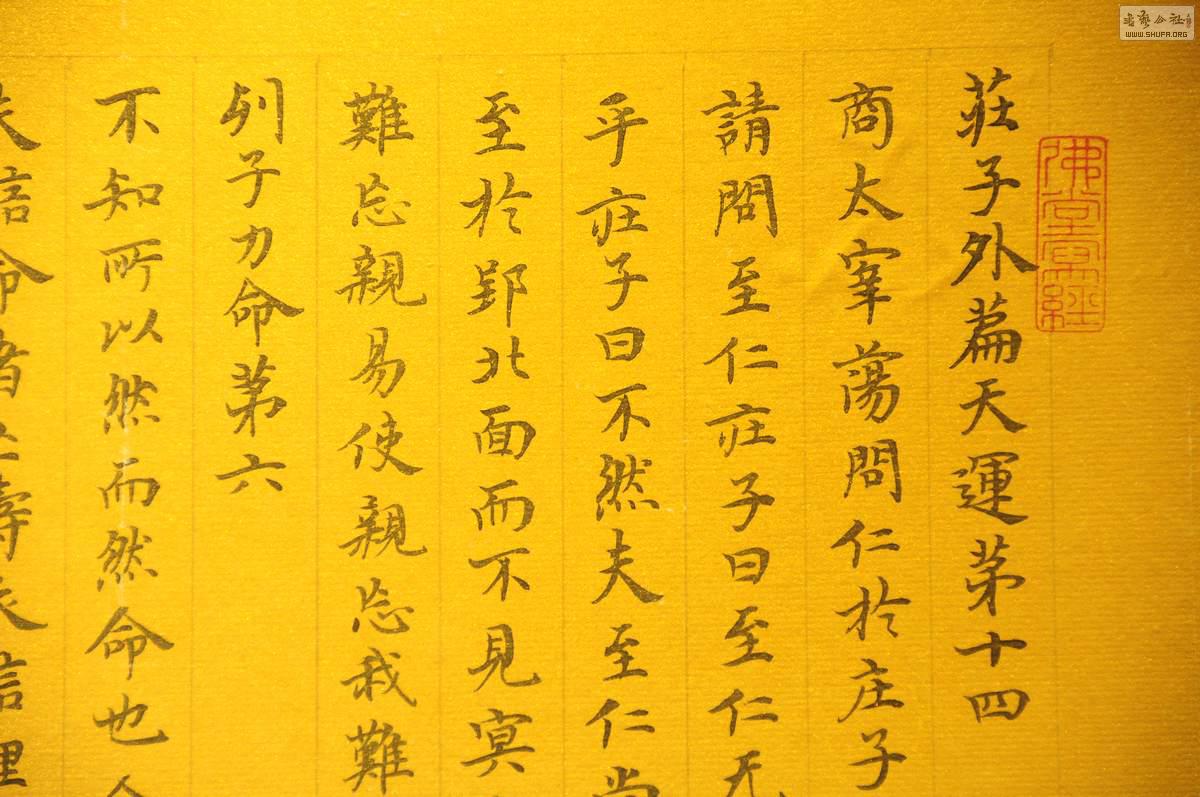 莊子外篇天運苐十四
商太宰蕩問仁於庄子
請問至仁莊子曰至仁无
乎莊子曰不然夫至仁尚
至於郢北面而不見冥
難忘親易使親忘我難
列子力命苐六
不知所以然而然命也
信命者亡壽夭信理
佛堂寫經
書藝公社
WWW.SHUFA.ORG